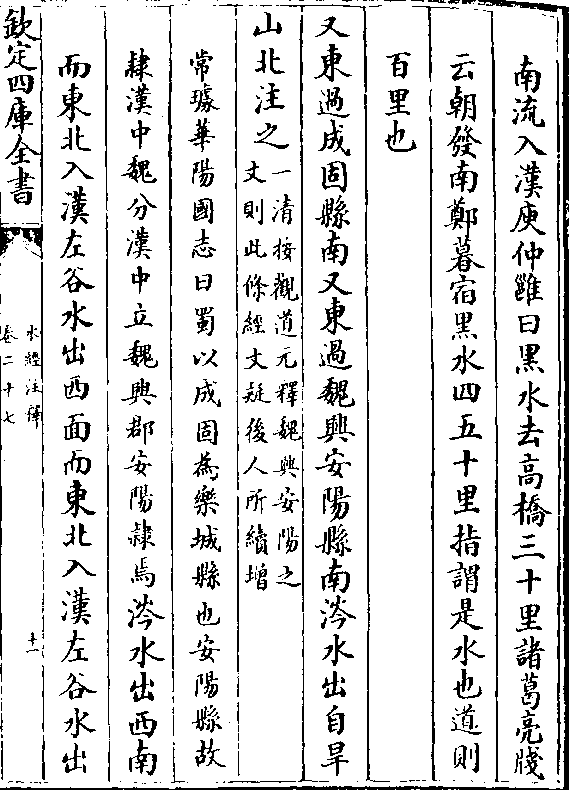 南流入漢庾仲雝曰黑水去高橋三十里諸葛亮牋
云朝發南鄭暮宿黑水四五十里指謂是水也道則
百里也
又東過成固縣南又東過魏興安陽縣南涔水出自旱
山北注之
一清按觀道元釋魏興安陽之
文則此條經文疑後人所續增
常璩華陽國志曰蜀以成固為樂城縣也安陽縣故
隸漢中魏分漢中立魏興郡安陽隸焉涔水出西南
而東北入漢左谷水出西面而東北入漢左谷水出
欽定四庫全書
水經注釋
卷二十七
十一